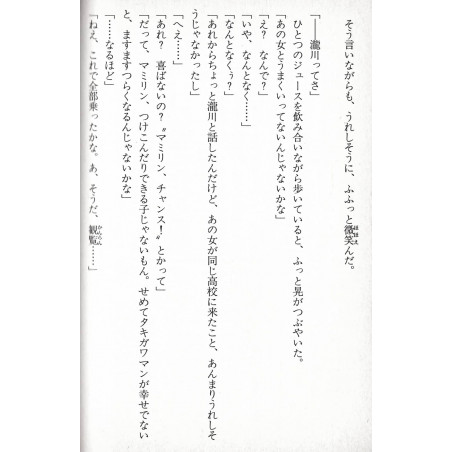 そう言いながらも、うれしそうに、ふふっと微笑んだ。
「――瀧川ってさ」
ひとつのジュースを飲み合いながら歩いていると、ふっと晃がつぶやいた。
「あの女とうまくいってないんじゃないかな」
「え？　なんで？」
「いや、なんとなく……」
「なんとなくぅ？」
「あれからちょっと瀧川と話したんだけど、あの女が同じ高校に来たこと、あんまりうれしそ
うじゃなかったし」
「へえ……」
「あれ？　喜ばないの？　〝マミリン、チャンス！〟とかって」
「だって、マミリン、つけこんだりできる子じゃないもん。せめてタキガワマンが幸せでない
と、ますますつらくなるんじゃないかな」
「……なるほど」
「ねえ、これで全部乗ったかな。あ、そうだ、観覧……」